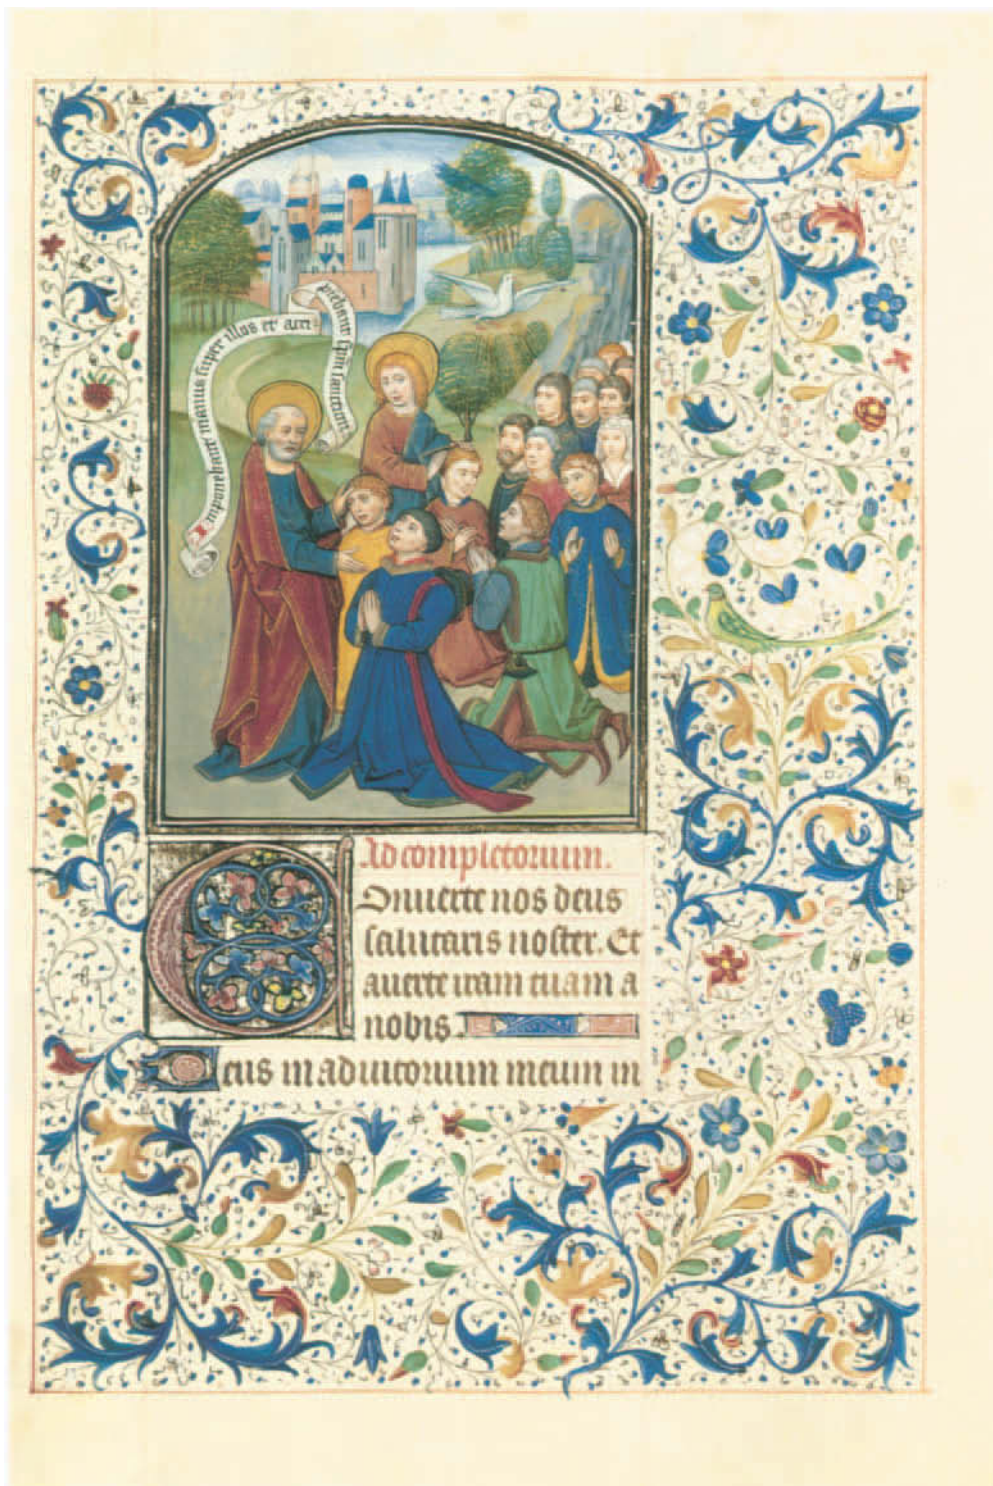 Imponebant manus super illos et acci
piebant spm sanctum
Ad completorium.
Onuerte nos deus
salutaris noster. Et
auerte iram tuam a
nobis.
Deus in adiutorium meum in